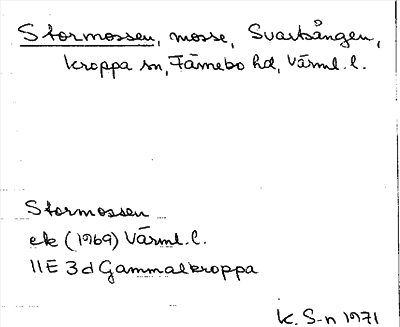 Stormossen, mosse, Svartsången,
Kroppa sn, Färnebo hd, Värml. l.
Stormossen
ek (1969) Värml. l.
11E 3d Gammalkroppa
K. S-n 1971